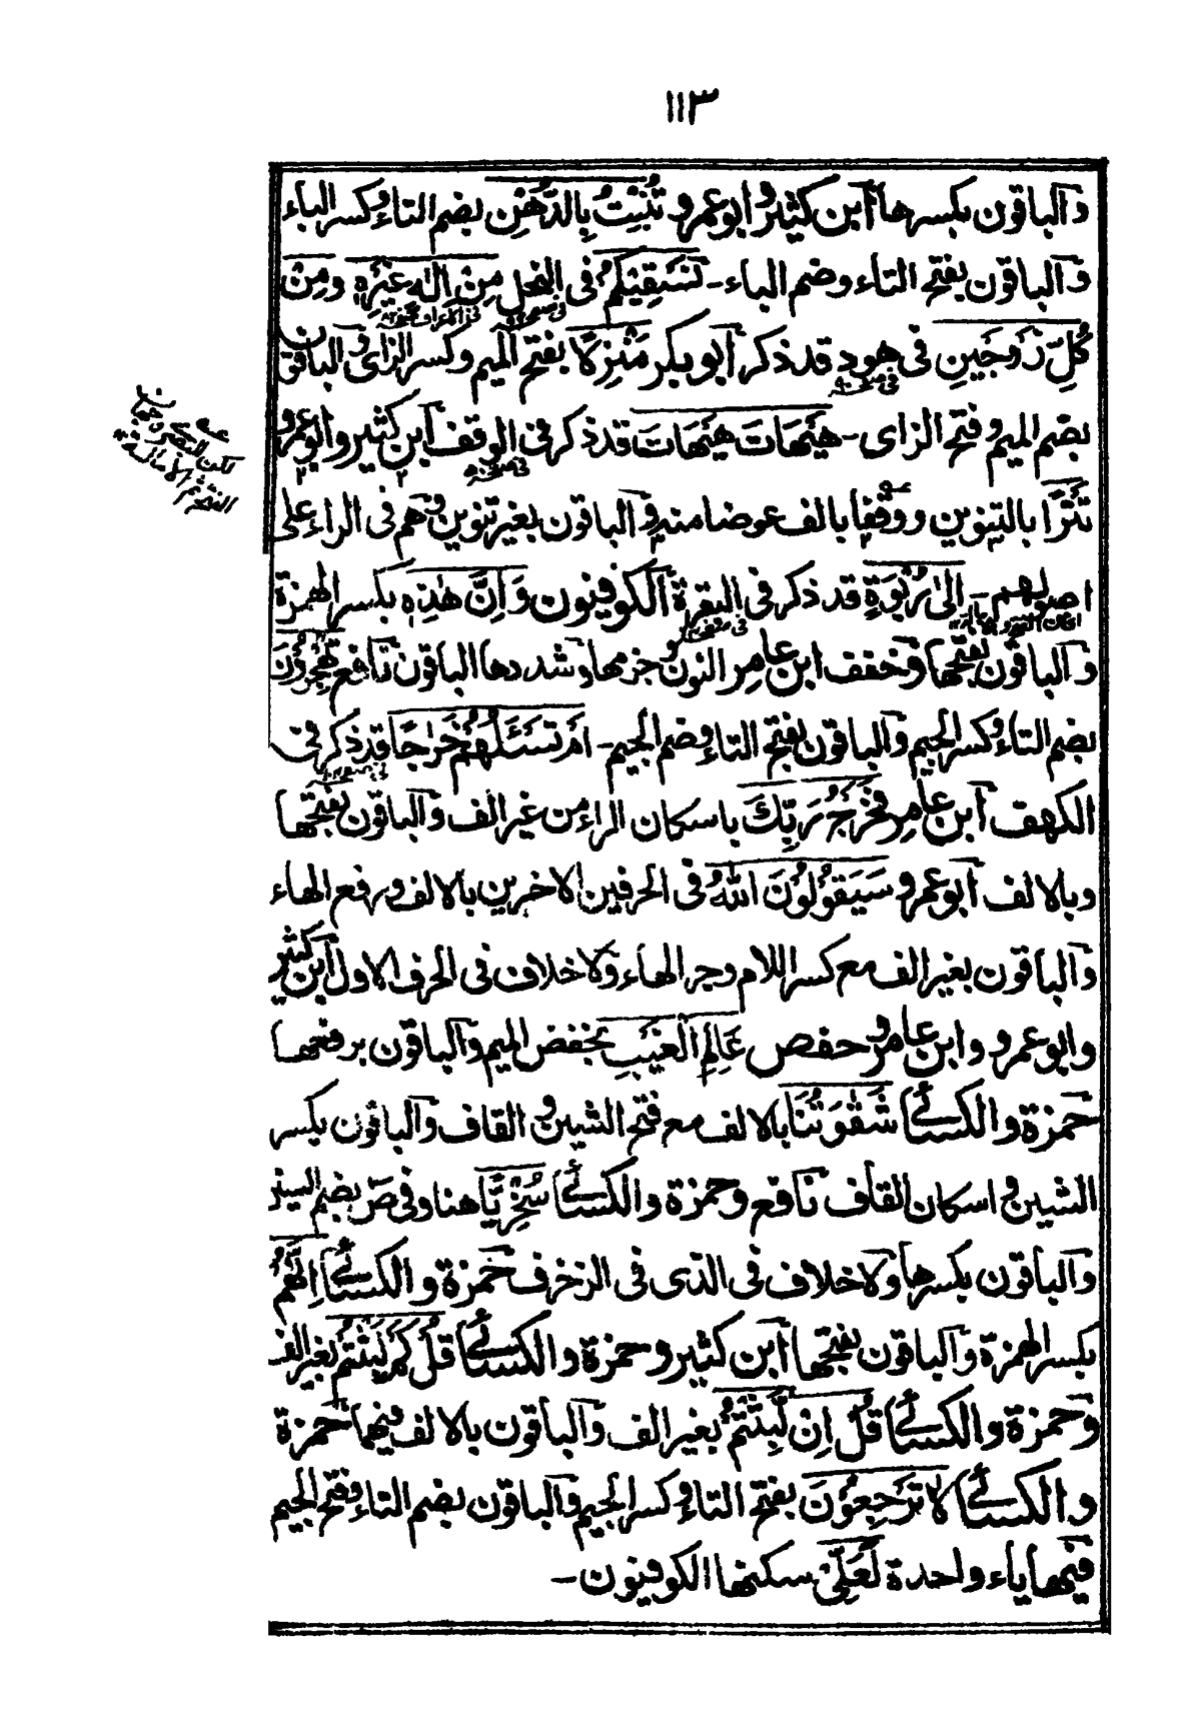 ١١٣
والباقون بكسرها ابن كثير وابو عمرو تُنْبِتُ بِالدُّهْنِ بضم التاء وكسر الباء
والباقون بفتح التاء وضم الباء ـ نُسْقِيْكُمْ فى النحل مِنْ اِلٰهٍ غَيْرُهٗ ومِنْ
كُلِّ زَوْجَيْنِ فى هود قد ذكر ابو بكر مَنْزِلًا بفتح الميم وكسر الزاى والباقون
بضم الميم وفتح الزاى ـ هَيْهَاتَ هَيْهَاتَ قد ذكر فى الوقف ابن كثير وابو عمرو
تَتْرًا بالتنوين ووقفا بالف عوضا منه والباقون بغير تنوين وهم فى الراء على
اصولهم ـ اِلٰى رَبْوَةٍ قد ذكر فى البقرة الكوفيون وَاِنَّ هٰذِهٖ بكسر الهمزة
والباقون بفتحها وخفف ابن عامر النون وجزمها وشددها الباقون نافع تُهْجِرُوْنَ
بضم التاء وكسر الجيم والباقون بفتح التاء وضم الجيم ـ اَمْ تَسْئَلُهُمْ خَرْجًا قد ذكر فى
الكهف ابن عامر فَخَرْجُ رَبِّكَ باسكان الراء من غير الف والباقون بفتحها
وبالالف ابو عمرو سَيَقُوْلُوْنَ اللّٰهُ فى الحرفين الاخرين بالالف ورفع الهاء
والباقون بغير الف مع كسر اللام وجر الهاء ولا خلاف فى الحرف الاول ابن كثير
وابو عمرو وابن عامر وحفص عَالِمِ الْغَيْبِ بخفض الميم والباقون برفعها
حمزة والكسائى شَقٰوَتُنَا بالالف مع فتح الشين والقاف والباقون بكسر
الشين واسكان القاف نافع وحمزة والكسائى سُخْرِيًّا هنا وفى صٓ بضم السين
والباقون بكسرها ولا خلاف فى الذى فى الزخرف حمزة والكسائى اِنَّهُمْ
بكسر الهمزة والباقون بفتحها ابن كثير وحمزة والكسائى قُلْ كَمْ لَبِثْتُمْ بغير الف
وحمزة والكسائى قُلْ اِنْ لَّبِثْتُمْ بغير الف والباقون بالالف فيهما حمزة
والكسائى لَا تَرْجِعُوْنَ بفتح التاء وكسر الجيم والباقون بضم التاء وفتح الجيم
فيها ياء واحدة لَعَلِّىْ سكنها الكوفيون ـ